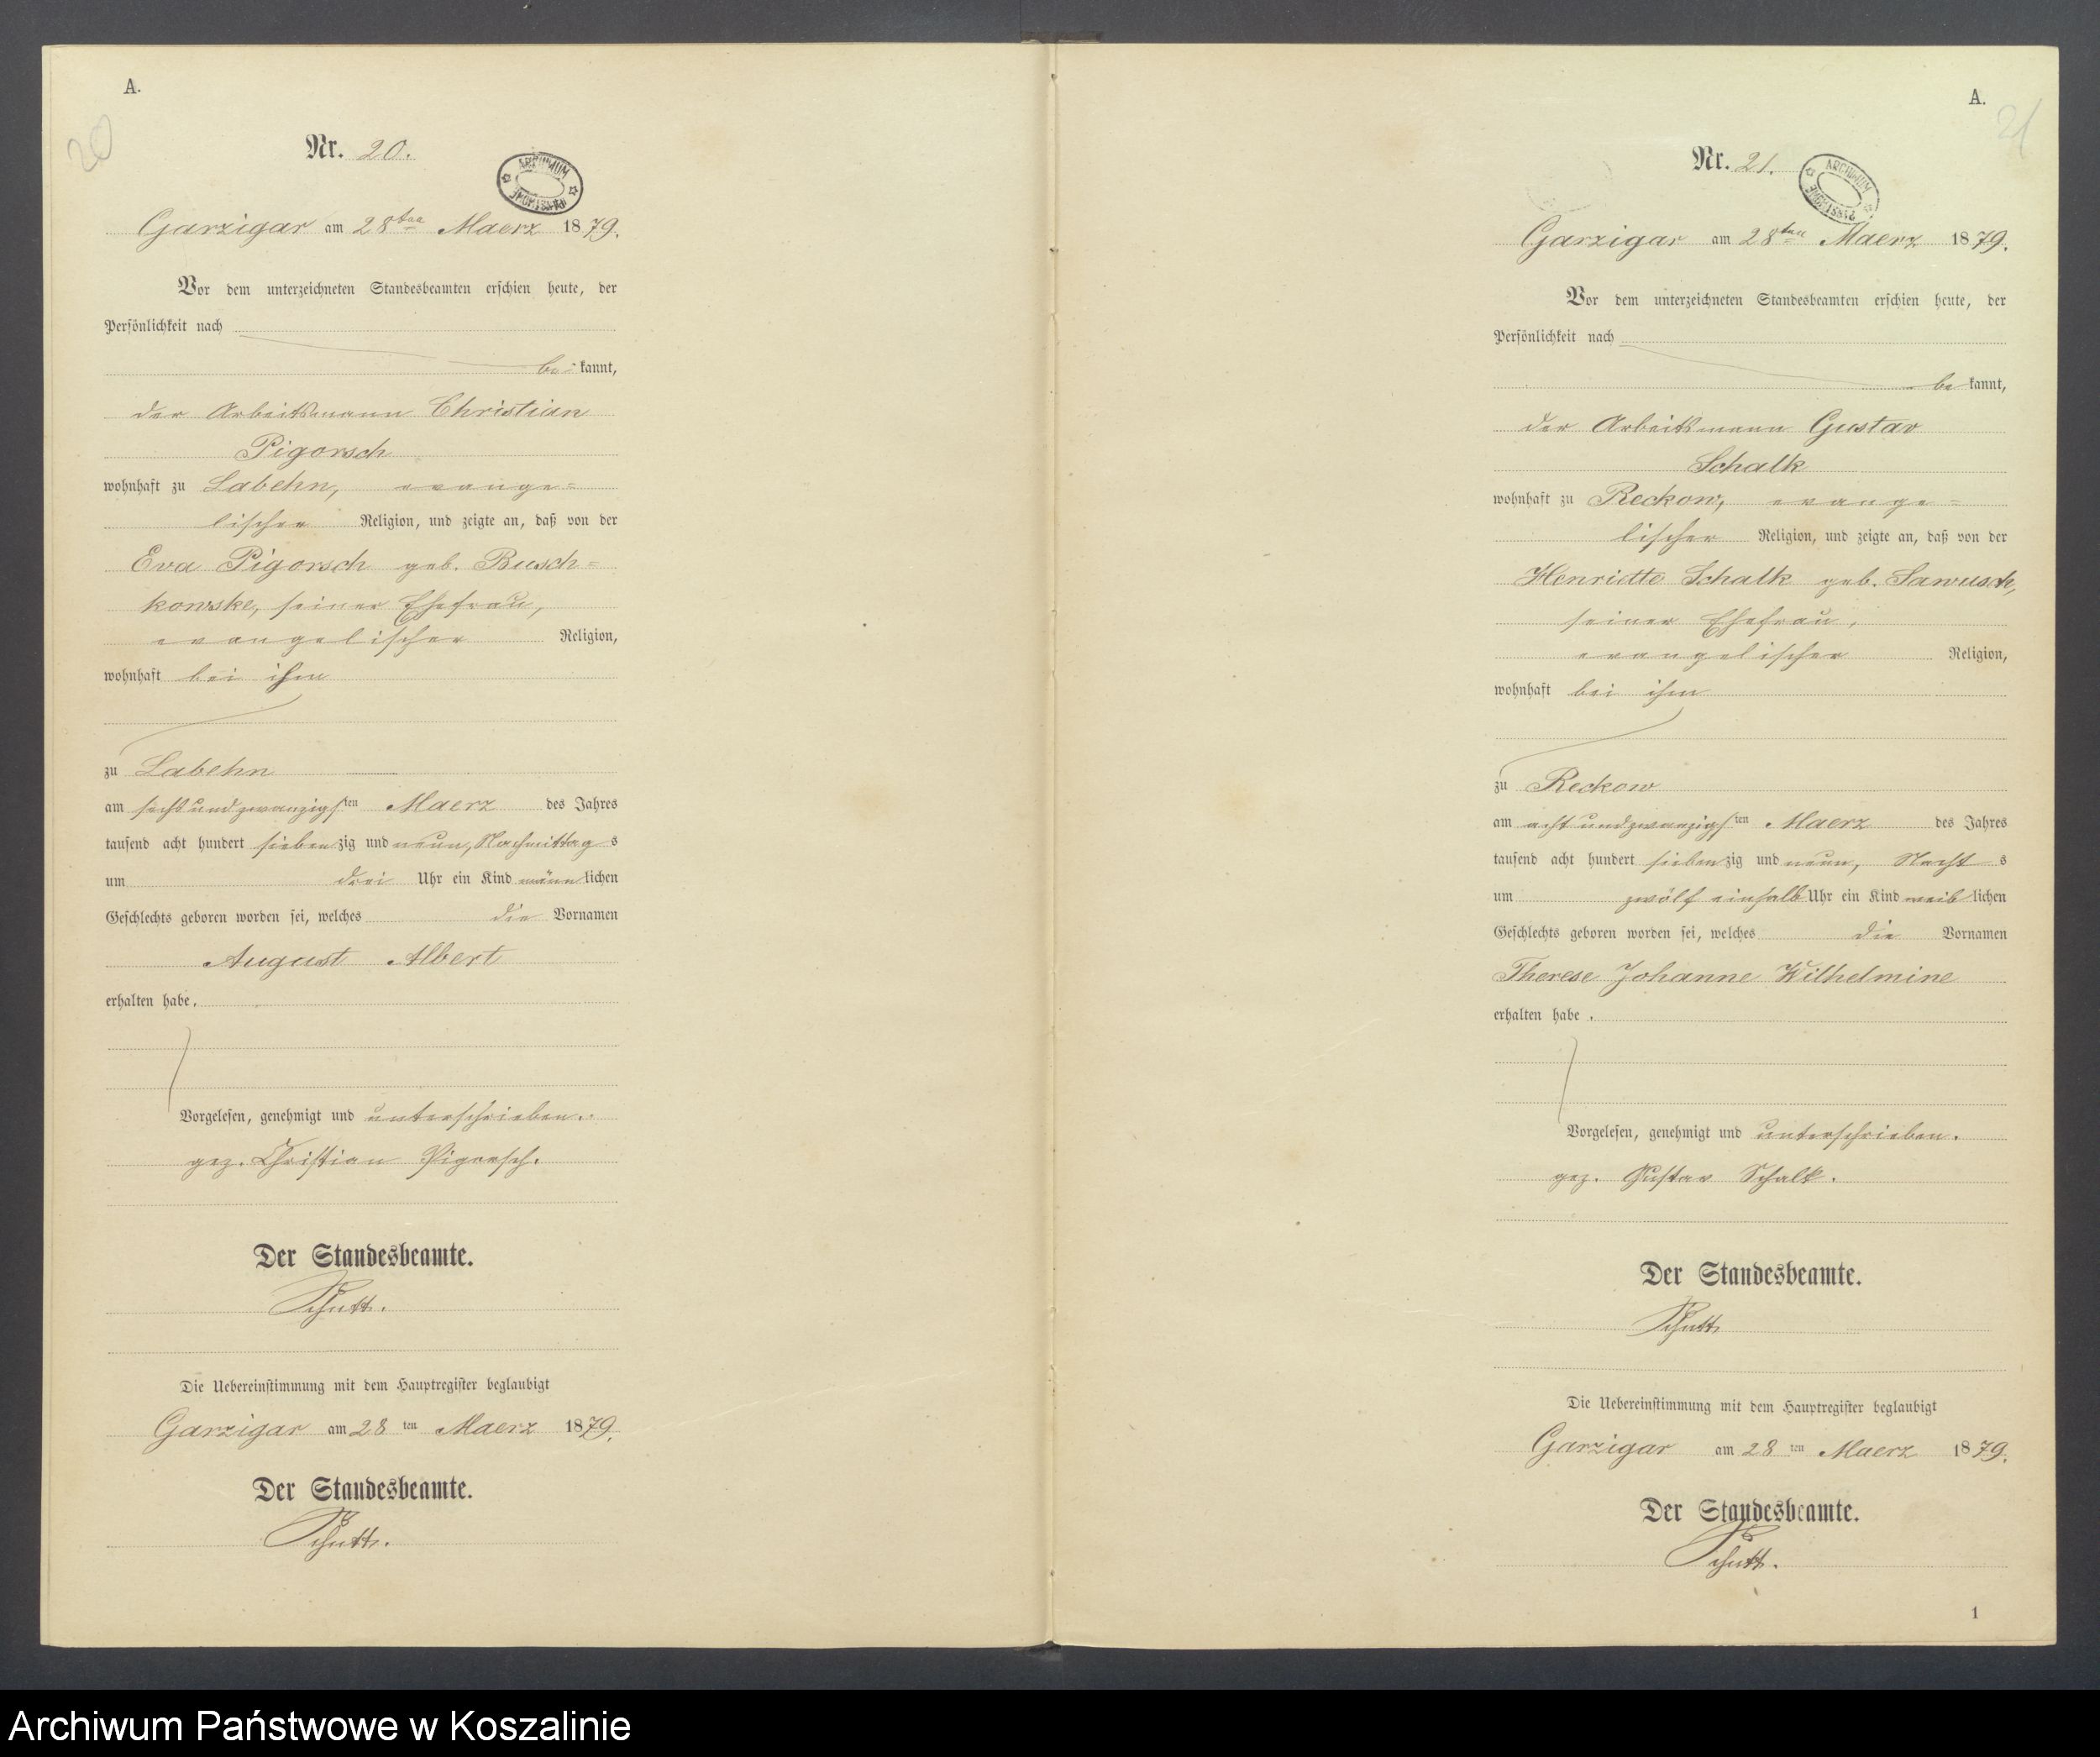 A.
20
Nr. 20.
ARCHIWUM
PAŃSTWOWE
Garzigar am 28ten Maerz 1879.
Vor dem unterzeichneten Standesbeamten erschien heute, der
Persönlichkeit nach
be kannt,
der Arbeitsmann Christian
Pigorsch
wohnhaft zu Labehn, evange=
lischer Religion, und zeigte an, daß von der
Eva Pigorsch geb. Busch=
kowske, seiner Ehefrau,
evangelischer Religion,
wohnhaft bei ihm
zu Labehn
am sechsundzwanzigsten Maerz des Jahres
tausend acht hundert siebenzig und neun, Nachmittags
um drei Uhr ein Kind männlichen
Geschlechts geboren worden sei, welches die Vornamen
August Albert
erhalten habe.
Vorgelesen, genehmigt und unterschrieben.
gez. Christian Pigorsch.
Der Standesbeamte.
Die Uebereinstimmung mit dem Hauptregister beglaubigt
Garzigar am 28 ten Maerz 1879.
Der Standesbeamte.
A.
21
Nr. 21.
ARCHIWUM
PAŃSTWOWE
Garzigar am 28ten Maerz 1879.
Vor dem unterzeichneten Standesbeamten erschien heute, der
Persönlichkeit nach
be kannt,
der Arbeitsmann Gustav
Schalk
wohnhaft zu Reckow, evange=
lischer Religion, und zeigte an, daß von der
Henriette Schalk geb.
seiner Ehefrau,
evangelischer Religion,
wohnhaft bei ihm
zu Reckow
am achtundzwanzigsten Maerz des Jahres
tausend acht hundert siebenzig und neun, Nachts
um zwölf einhalb Uhr ein Kind weiblichen
Geschlechts geboren worden sei, welches die Vornamen
Therese Johanne Wilhelmine
erhalten habe.
Vorgelesen, genehmigt und unterschrieben.
gez. Gustav Schalk.
Der Standesbeamte.
Die Uebereinstimmung mit dem Hauptregister beglaubigt
Garzigar am 28 ten Maerz 1879.
Der Standesbeamte.
1
Archiwum Państwowe w Koszalinie